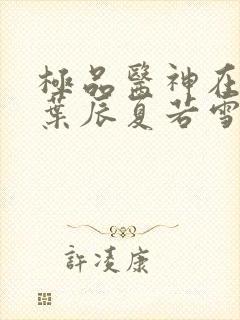 極品醫神在
葉辰夏若雪
許凌康